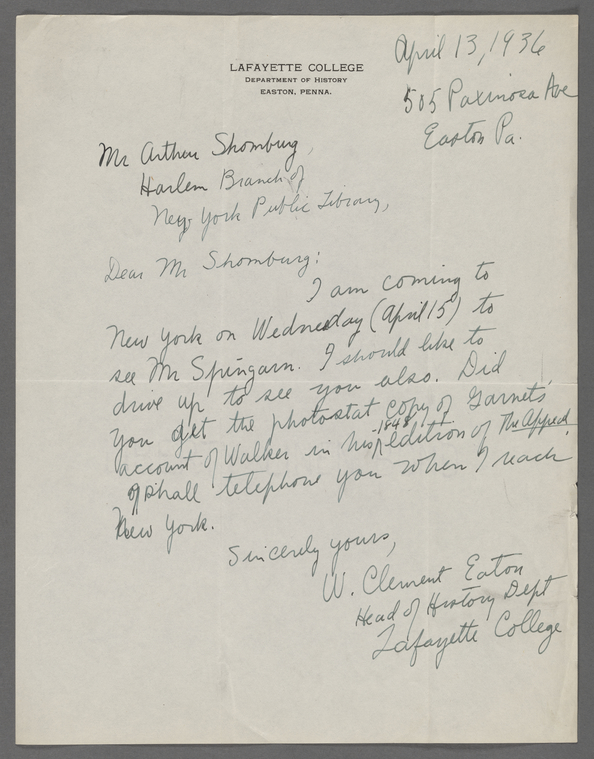 April 13, 1936
LAFAYETTE COLLEGE
DEPARTMENT OF HISTORY
EASTON, PENNA.
505 Paxinosa Ave
Easton Pa.
Mr Arthur Shomburg,
Harlem Branch of
New York Public Library,
Dear Mr Shomburg:
I am coming to
New York on Wednesday (April 15) to
see Mr Spingarn. I should like to
drive up to see you also. Did
you get the photostat copy of Garnets'
account of Walker in his 1848 edition of The Appeal
I shall telephone you when I reach
New York.
Sincerely yours,
W. Clement Eaton
Head of History Dept
Lafayette College